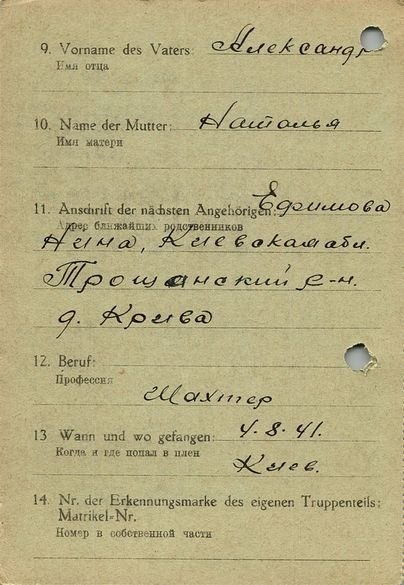 9. Vorname des Vaters: Александр
Имя отца
10. Name der Mutter: Наталья
Имя матери
11. Anschrift der nächsten Angehörigen: Ефимова
Адрес ближайших родственников
Нина, Киевская обл.
Трощанский р-н.
д. Крива
12. Beruf:
Профессия
Шахтер
13 Wann und wo gefangen: 4.8.41.
Когда и где попал в плен
Киев.
14. Nr. der Erkennungsmarke des eigenen Truppenteils:
Matrikel-Nr.
Номер в собственной части